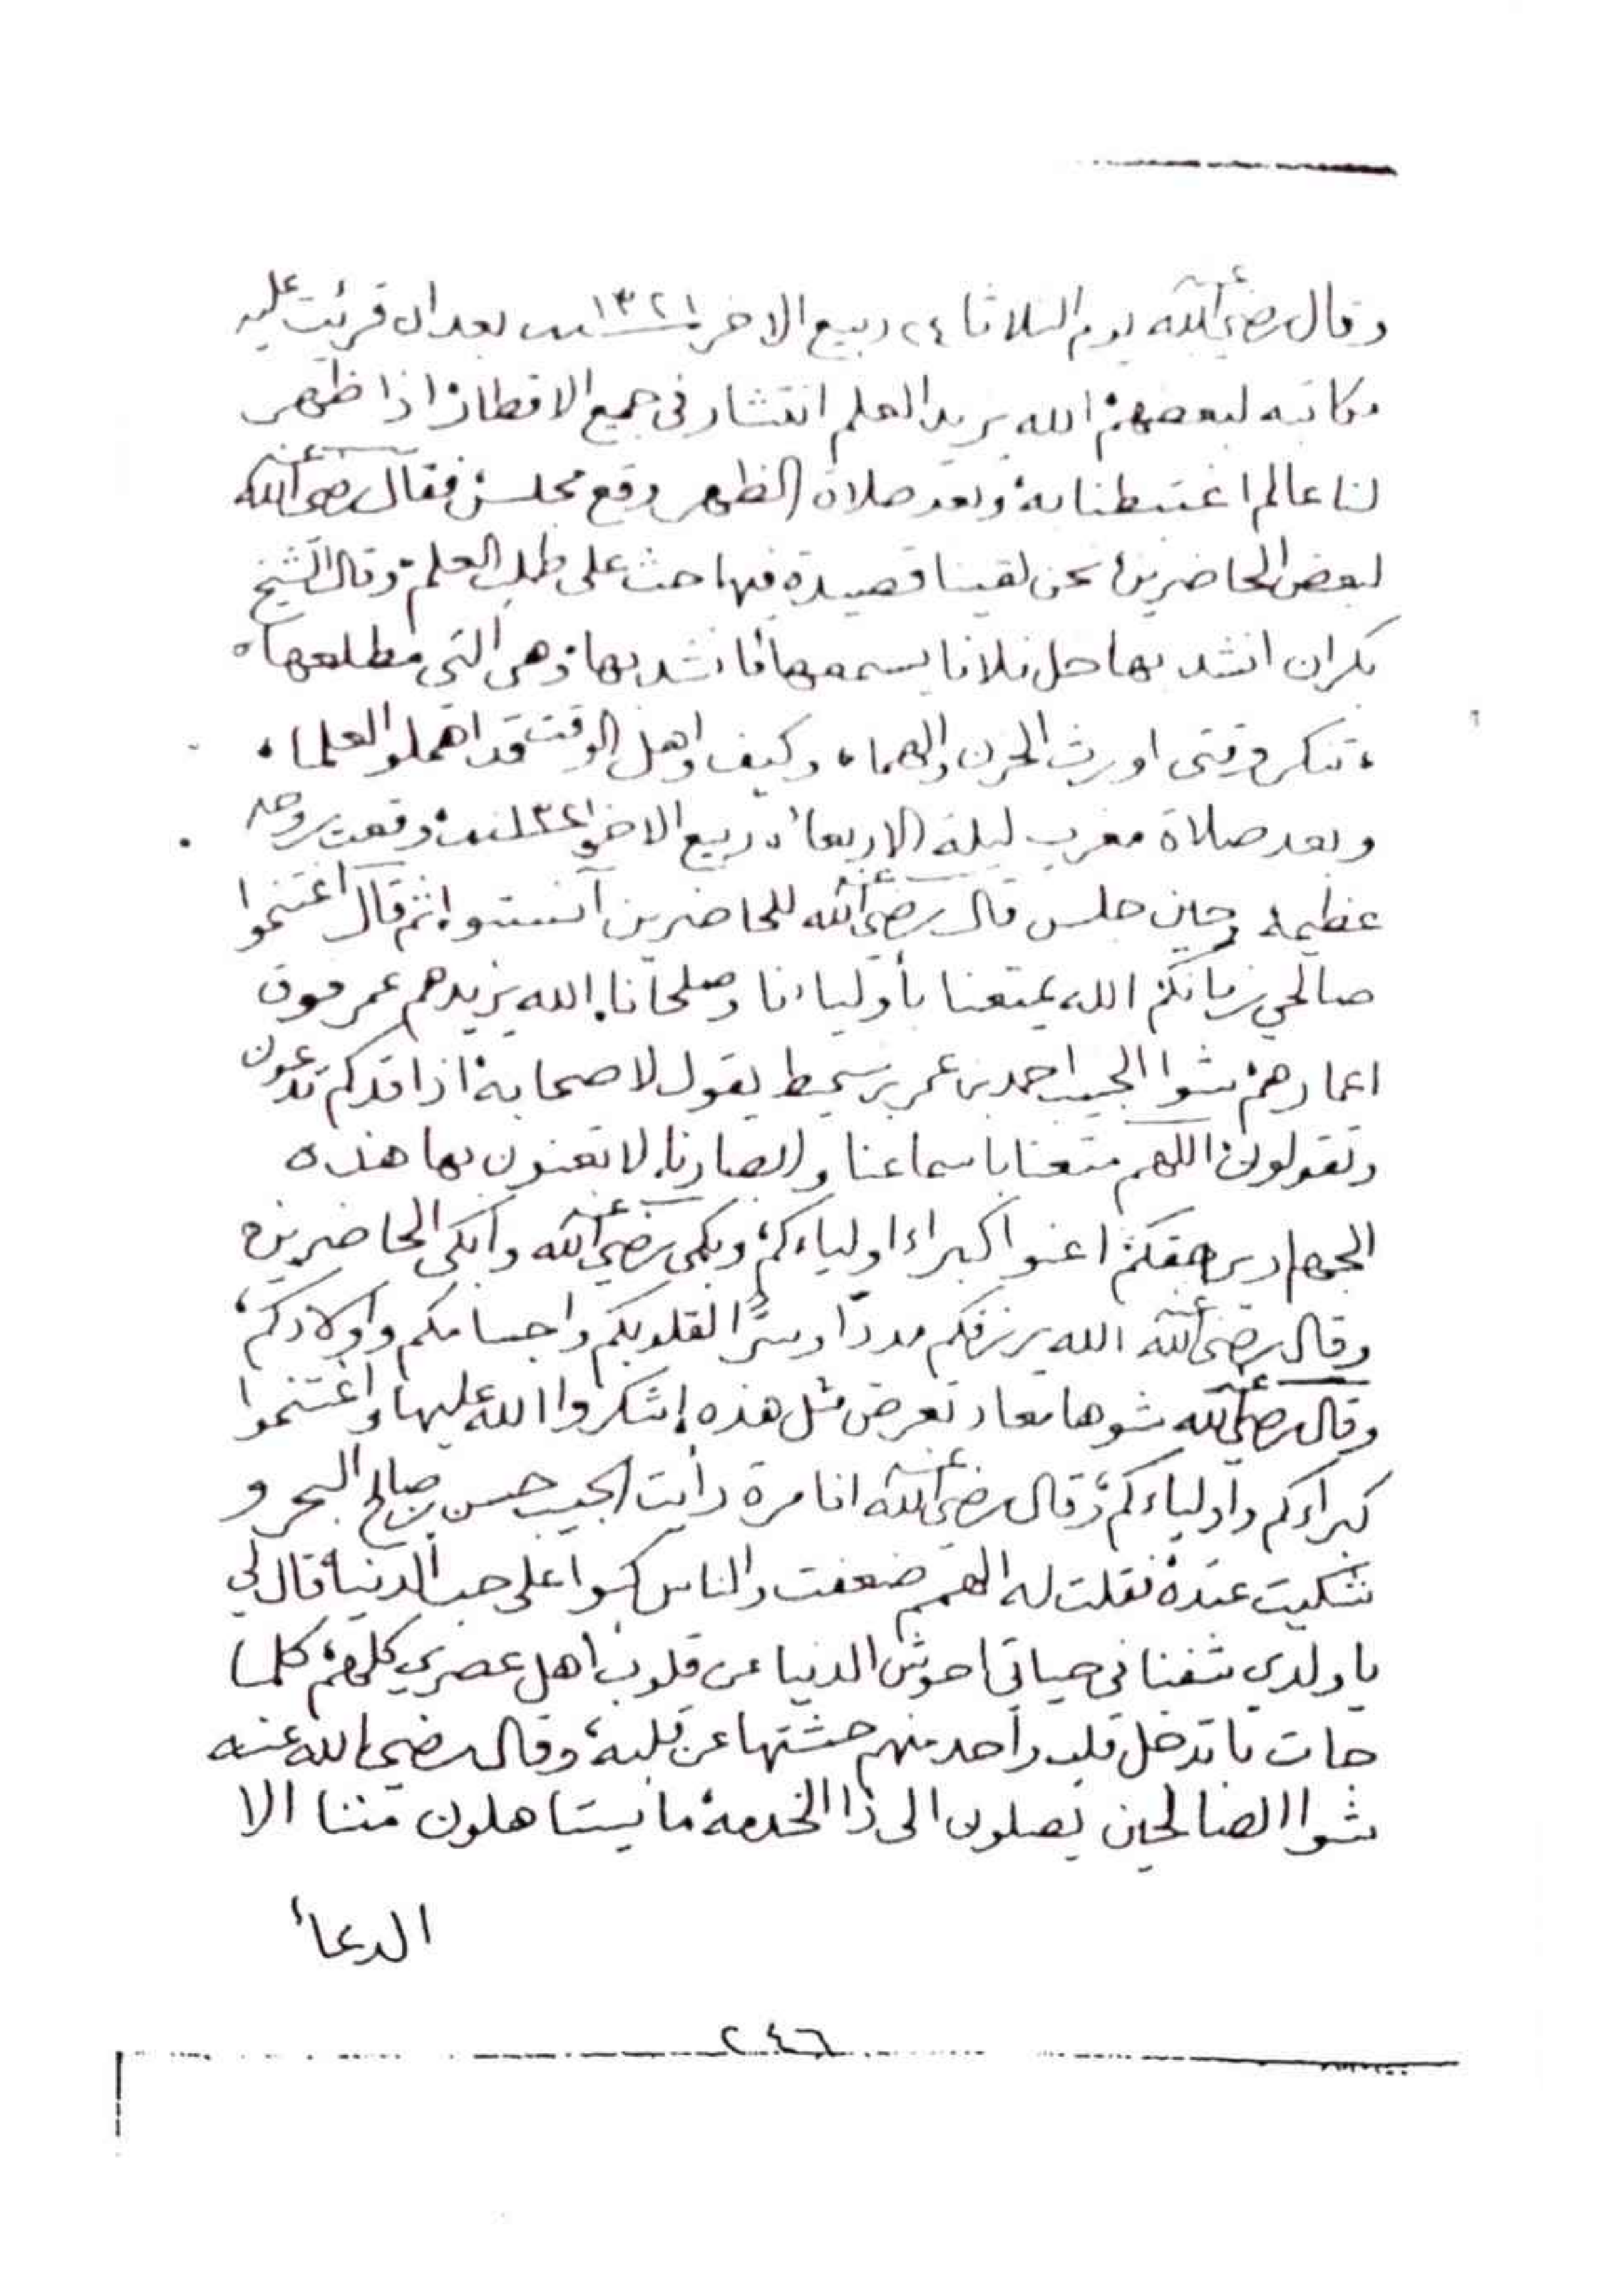 وقال رضي الله عنه يوم الثلاثا ٢٤ ربيع الاخر سنة ١٣٢١ بعد ان قرئت عليه
مكاتبه لبعضهم الله يريد العلم انتشار في جميع الاقطار اذا ظهر
لنا عالم اغتبطنا به وبعد صلاة الظهر وقع مجلس فقال رضي الله عنه
لبعض الحاضرين نحن لقينا قصيدة فيها حث على طلب العلم وقال الشيخ
بكران انشد بها خل فلانا يسمعها فانشد بها وهي التي مطلعها
تنكر وقتي اورث الحزن والهما وكيف واهل الوقت قد اهملوا العلما
وبعد صلاة مغرب ليلة الاربعاء ربيع الاخر سنة وقعت روحه
عظيمه وحين جلس قال رضي الله عنه للحاضرين آنستوا ثم قال اغتنموا
صالحي زمانكم الله يمتعنا بأولياءنا وصلحانا الله يزيدهم عمر فوق
اعمارهم شوا الحبيب احمد بن عمر بن سميط يقول لاصحابه اذا قدكم تدعون
وتقولون اللهم متعنا باسماعنا وابصارنا لا تعنون بها هذه
حقكم اعنوا كبراء اولياءكم وبكى رضي الله عنه وأبكى الحاضرين
وقال رضي الله عنه الله يرزقكم مددًا وسرًا لقلوبكم واجسامكم واولادكم
وقال رضي الله عنه شوها معاد تعرض مثل هذه إشكروا الله عليها واغتنموا
كبراءكم واولياءكم وقال رضي الله عنه انا مرة رأيت الحبيب حسن بن صالح البحر و
شكيت عنده فقلت له الهمم ضعفت والناس كبوا على حب الدنيا قال لي
يا ولدي شفنا في حياتي احوش الدنيا عن قلوب اهل عصري كلهم كلما
جات با تدخل قلب واحد منهم حشتها عن قلبه وقال رضي الله عنه
شوا الصالحين يصلون الى ذا الخدمة ما يستاهلون مننا الا
الدعأ
٢٤٦